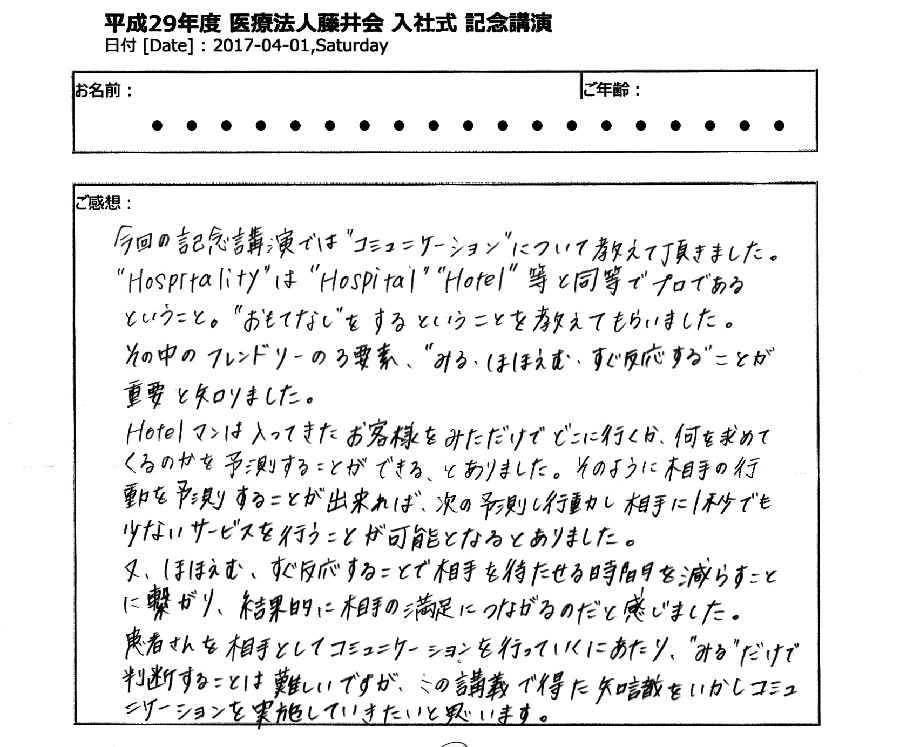 平成29年度 医療法人藤井会 入社式 記念講演
日付 [Date] : 2017-04-01,Saturday
お名前： ご年齢：
ご感想：
今回の記念講演では"コミュニケーション"について教えて頂きました。
"Hospitality"は"Hospital""Hotel"等と同等でプロである
ということ。"おもてなし"をするということを教えてもらいました。
その中のフレンドリーの3要素、"みる、ほほえむ、すぐ反応する"ことが
重要と知りました。
Hotelマンは入ってきたお客様をみただけでどこに行くか、何を求めて
くるのかを予測することができる、とありました。そのように相手の行
動を予測することが出来れば、次の予測し行動かし相手に1秒でも
少ないサービスを行うことが可能となるとありました。
又、ほほえむ、すぐ反応することで相手を待たせる時間を減らすこと
に繋がり、結果的に相手の満足につながるのだと感じました。
患者さんを相手としてコミュニケーションを行っていくにあたり、"みる"だけで
判断することは難しいですが、この講義で得た知識をいかしコミュ
ニケーションを実施していきたいと思います。